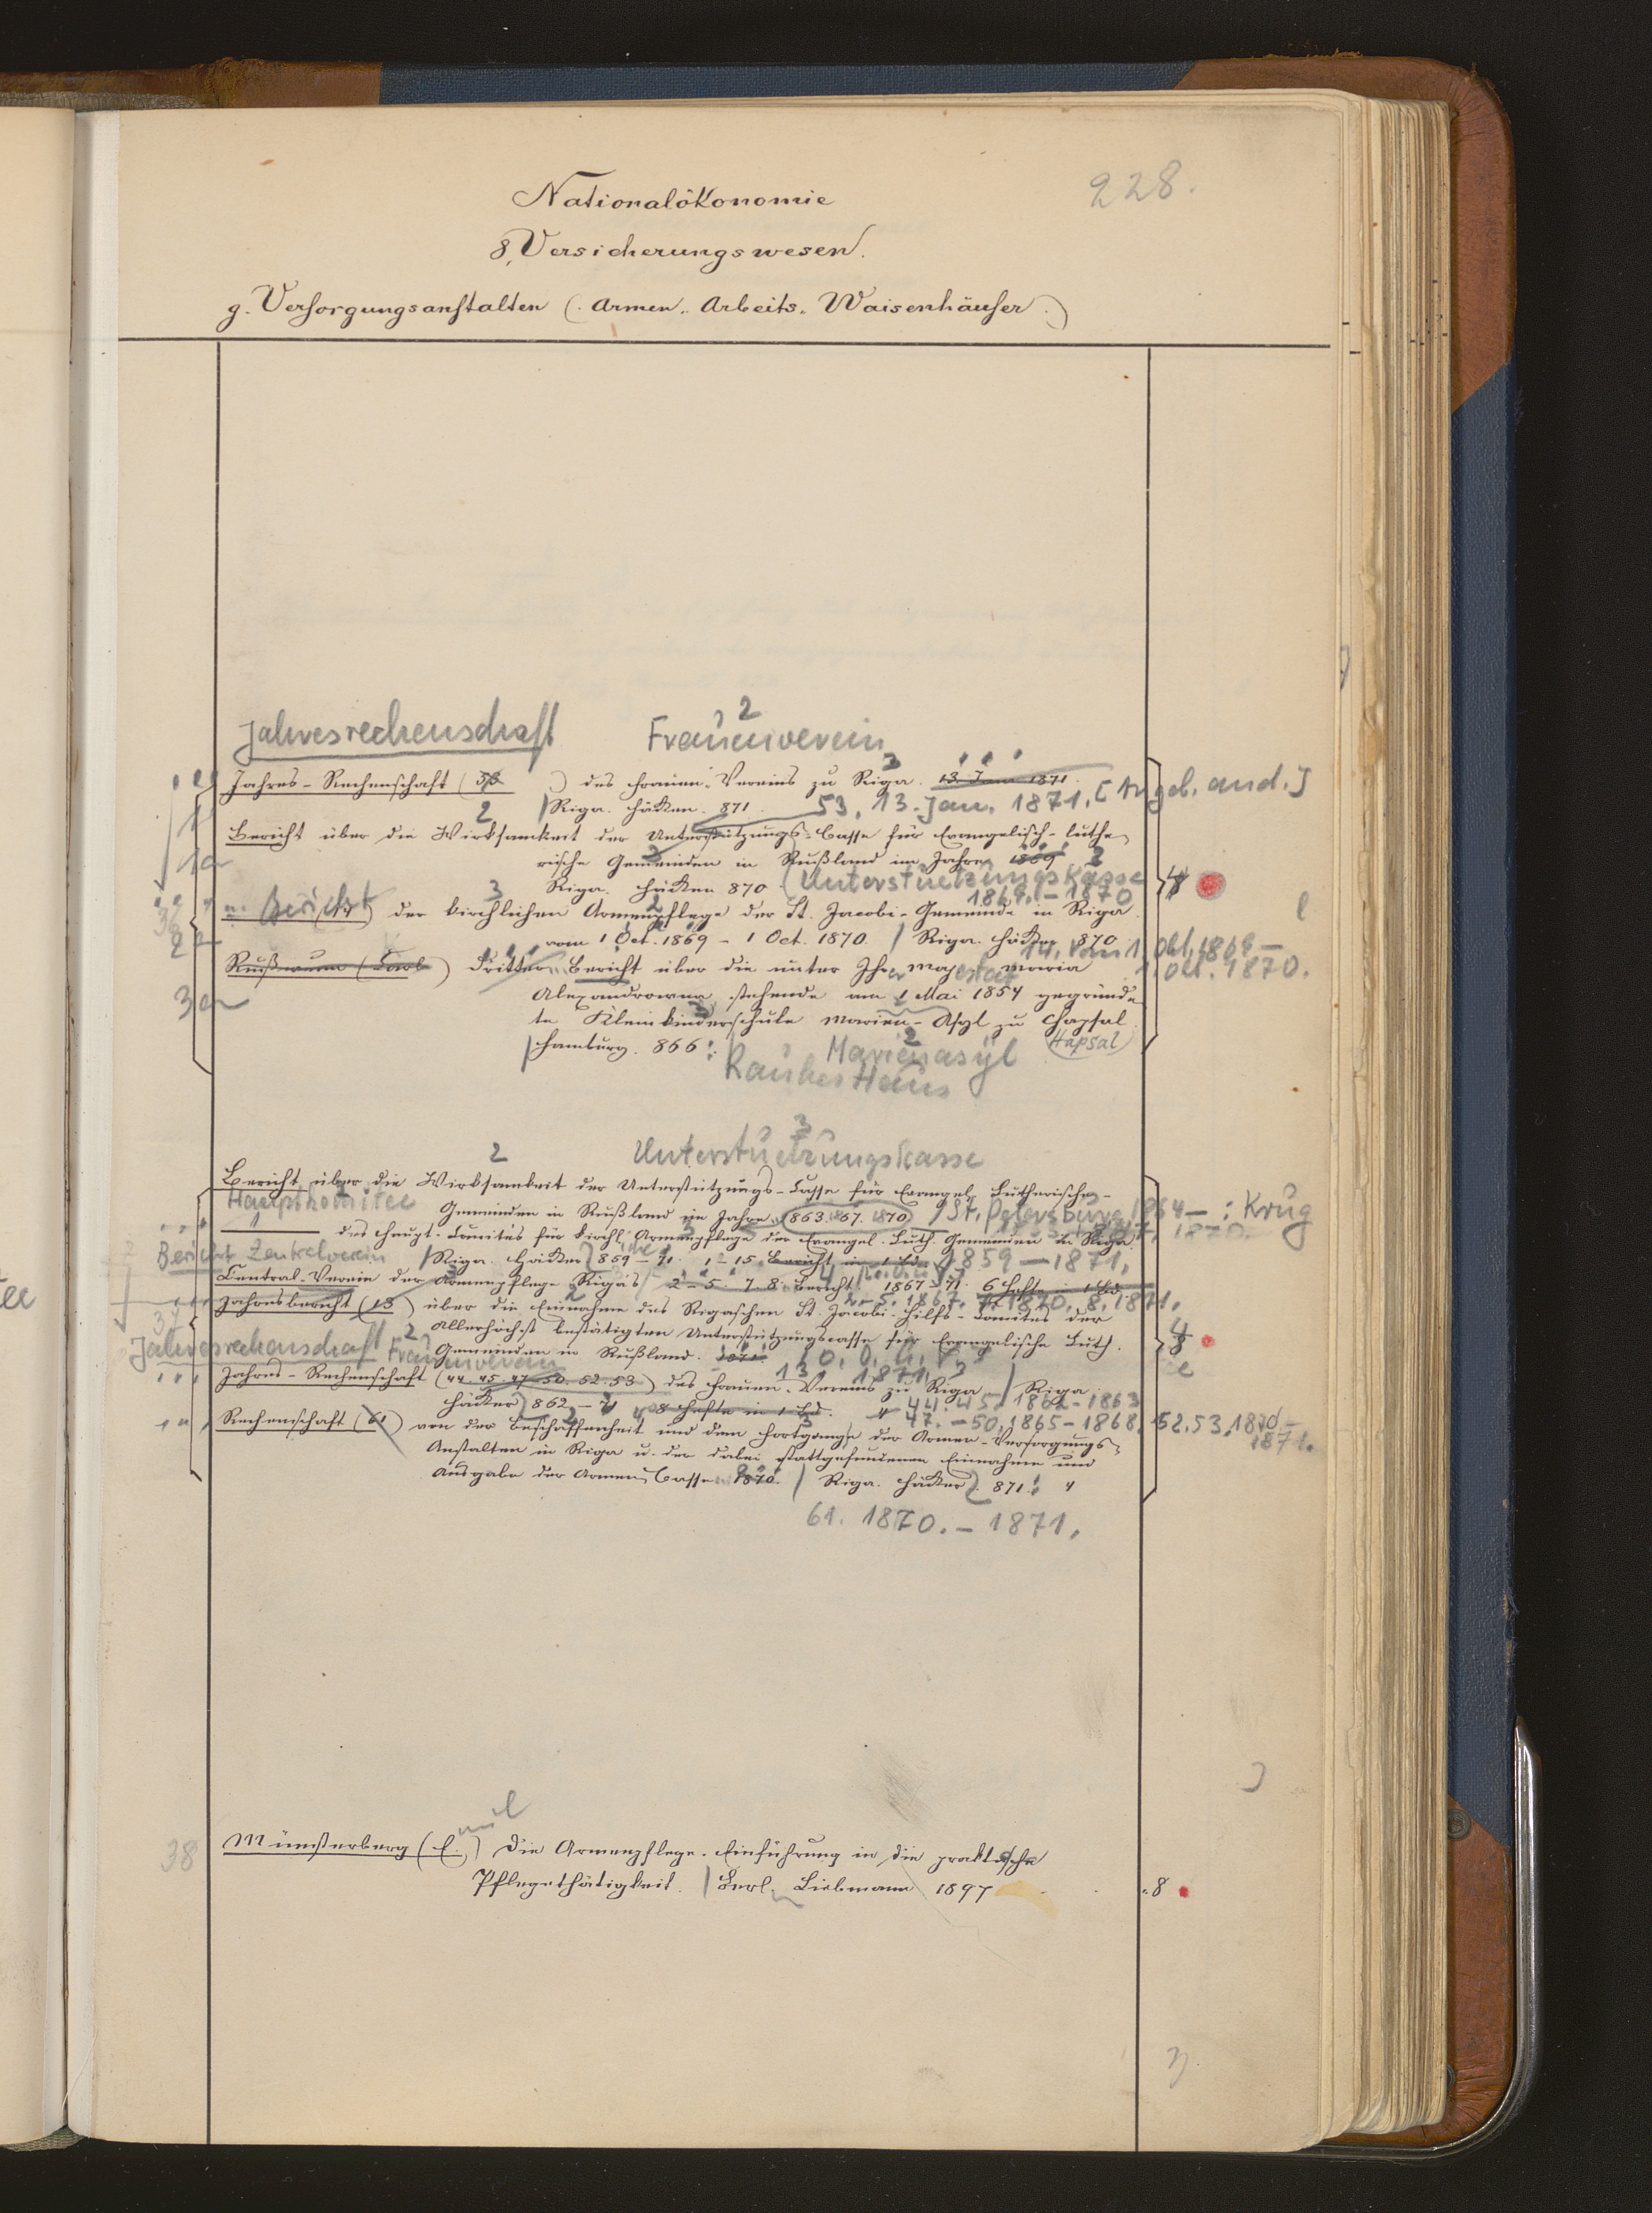 228.
Nationalökonomie
8, Versicherungswesen.
g. Versorgungsanstalten (. Armen.. Arbeits.. Waisenhäuser .)
Jahresrechenschaft Frauenverein 2
Jahres-Rechenschaft (53 ) des Frauen-Vereins zu Riga. 13 Jan 1871. 3
Riga. Häcker. 871. 53, 13. Jan. 1871. [Angeb. and.]
Bericht über die Wirksamkeit der Unterstützungs-Casse für Evangelisch-luthe
rische Gemeinden in Rußland im Jahre 1869
Riga. Häcker 870. (Unterstuetzungskasse 4
1869.-1870
" Bericht (14) der kirchlichen Armenpflege der St. Jacobi-Gemeinde in Riga.
vom 1 Oct. 1869 - 1 Oct. 1870. / Riga. Häcker 870
14. vom 1. Okt. 1869 -
1. Okt. 1870.
Rußwurm (Carl) Dritter Bericht über die unter Ihrer Majestät Maria
Alexandrowna stehende am 1 Mai 1854 gegründe
te Kleinkinderschule Marien-Asyl zu Hapsal.
Hamburg. 866: Marienasyl (Hapsal)
Rauhes Haus
2 Unterstuetzungskasse 3
Bericht über die Wirksamkeit der Unterstützungs-Casse für Evangel. Lutherische-
Hauptkomitee Gemeinden in Rußland im Jahre 863. 867. 1870 / St. Petersburg 1864- : Krug
des Haupt-Comités für kirchl. Armenpflege der Evangel. Luth. Gemeinden in Riga. 1870.
Bericht Zentralverein Riga. Häcker 859-71. 1-15. Bericht in 1 Bd. 1859-1871.
Central-Verein der Armenpflege Riga's 2-5. 7. 8. Bericht 1867-71. 6 Hefte in 1 Bd.
2-5. 1867. 7. 1870. 8. 1871.
Jahresbericht (13) über die Einnahme des Rigaschen St. Jacobi-Hilfs-Comités der
Allerhöchst bestätigten Unterstützungscasse für Evangelische Luth.
Gemeinden in Rußland. 1871. 4
Jahresrechenschaft Frauenverein 2 13. 1871.
Jahres-Rechenschaft (44. 45. 47-50. 52. 53) des Frauen-Vereins zu Riga / Riga.
Häcker 862-71 8 Hefte in 1 Bd. 44. 45. 1862-1863
47.-50. 1865-1868. 52. 53. 1870-
1871.
Rechenschaft (61) von der Beschaffenheit und dem Fortgange der Armen-Versorgungs-
Anstalten in Riga u. der dabei stattgefundenen Einnahme und
Ausgabe der Armen-Casse. 1870. / Riga. Häcker 871.
61. 1870.-1871.
38 Münsterberg (E.) Die Armenpflege. Einführung in die praktische
Pflegethätigkeit. / Berl. Liebmann 1897 8